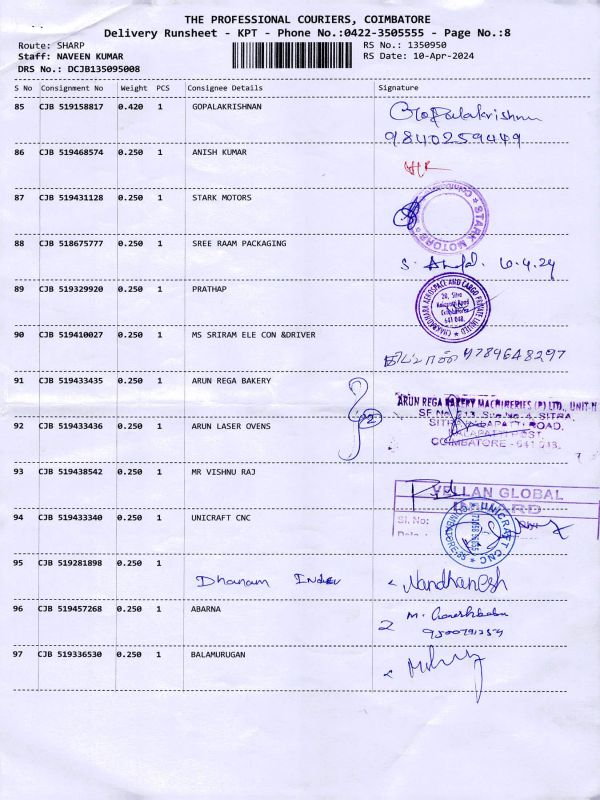 THE PROFESSIONAL COURIERS, COIMBATORE
Delivery Runsheet - KPT - Phone No.:0422-3505555 - Page No.:8
Route: SHARP RS No.: 1350950
Staff: NAVEEN KUMAR RS Date: 10-Apr-2024
DRS No.: DCJB135095008
S No Consignment No Weight PCS Consignee Details Signature
85 CJB 519158817 0.420 1 GOPALAKRISHNAN Gopalakrishnan
9840259449
86 CJB 519468574 0.250 1 ANISH KUMAR
87 CJB 519431128 0.250 1 STARK MOTORS
★ STARK MOTORS ★
88 CJB 518675777 0.250 1 SREE RAAM PACKAGING
89 CJB 519329920 0.250 1 PRATHAP
90 CJB 519410027 0.250 1 MS SRIRAM ELE CON &DRIVER
9789648297
91 CJB 519433435 0.250 1 ARUN REGA BAKERY
ARUN REGA BAKERY MACHINERIES (P) LTD., UNIT-II
92 CJB 519433436 0.250 1 ARUN LASER OVENS
COIMBATORE - 641
93 CJB 519438542 0.250 1 MR VISHNU RAJ
VELLAN GLOBAL
94 CJB 519433340 0.250 1 UNICRAFT CNC
Sl. No:
UNICRAFT CNC
95 CJB 519281898 0.250 1
Dhanam Nandhanesh
96 CJB 519457268 0.250 1 ABARNA
97 CJB 519336530 0.250 1 BALAMURUGAN